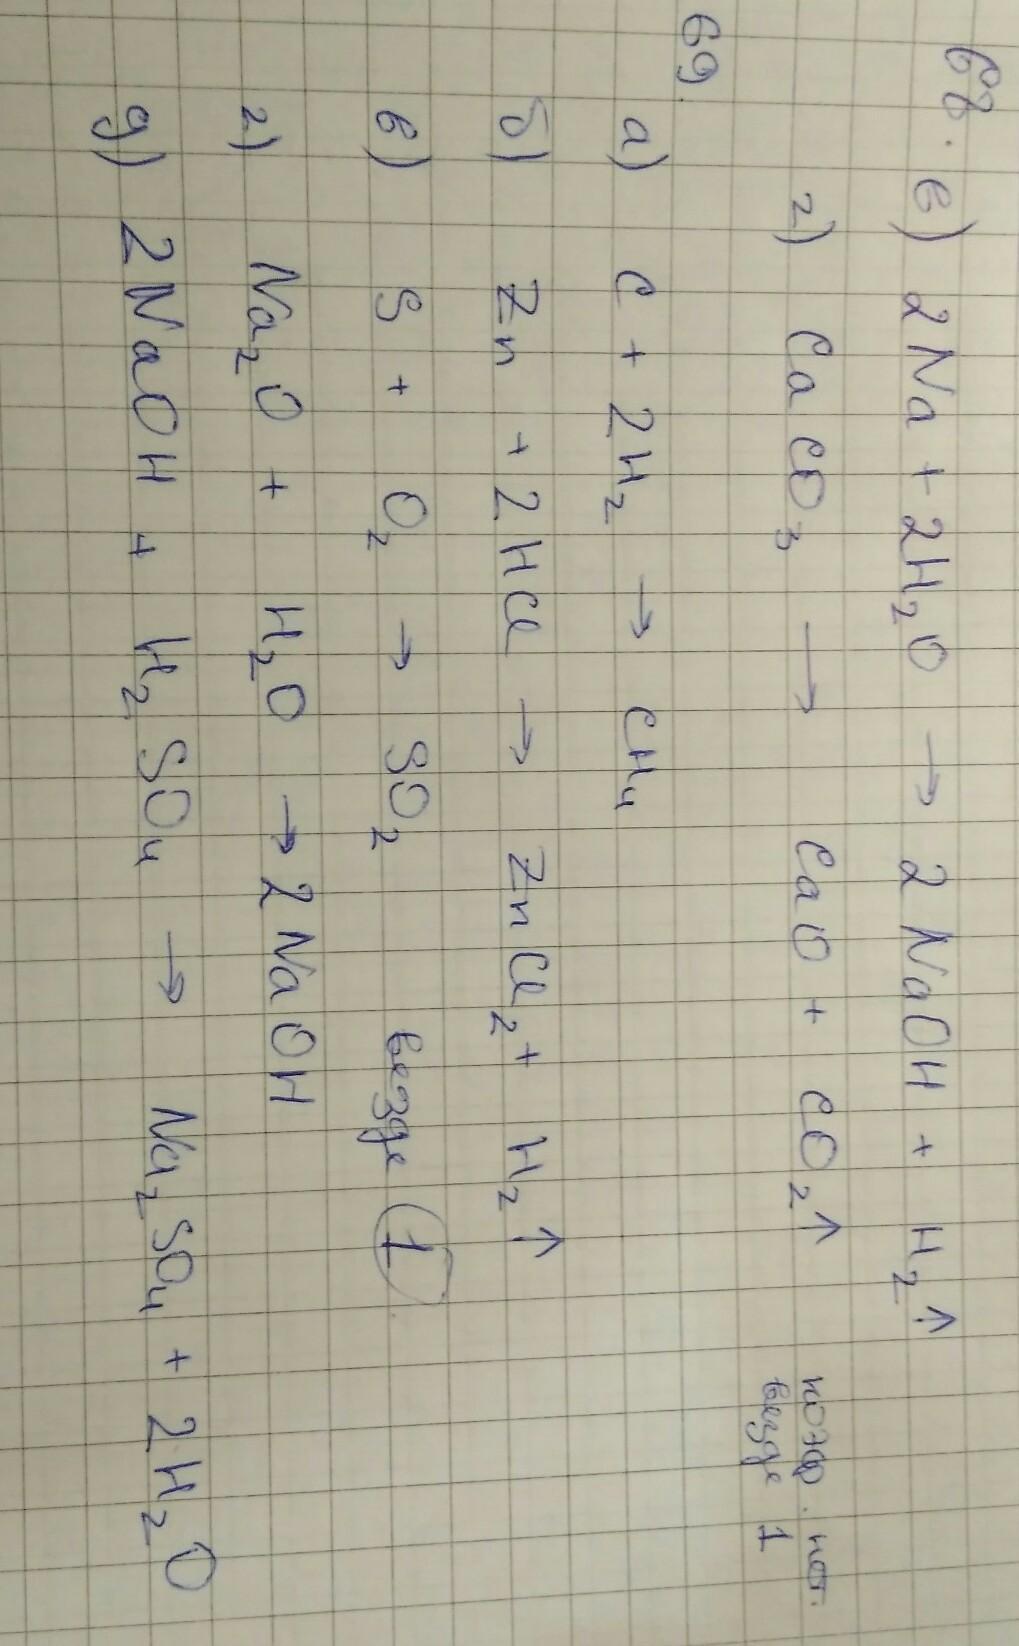 68. в) 2Na + 2H₂O → 2NaOH + H₂↑
г) CaCO₃ → CaO + CO₂↑ коэф. нет.
везде 1
69.
а) C + 2H₂ → CH₄
б) Zn + 2HCl → ZnCl₂ + H₂↑
в) S + O₂ → SO₂ везде 1
г) Na₂O + H₂O → 2NaOH
д) 2NaOH + H₂SO₄ → Na₂SO₄ + 2H₂O